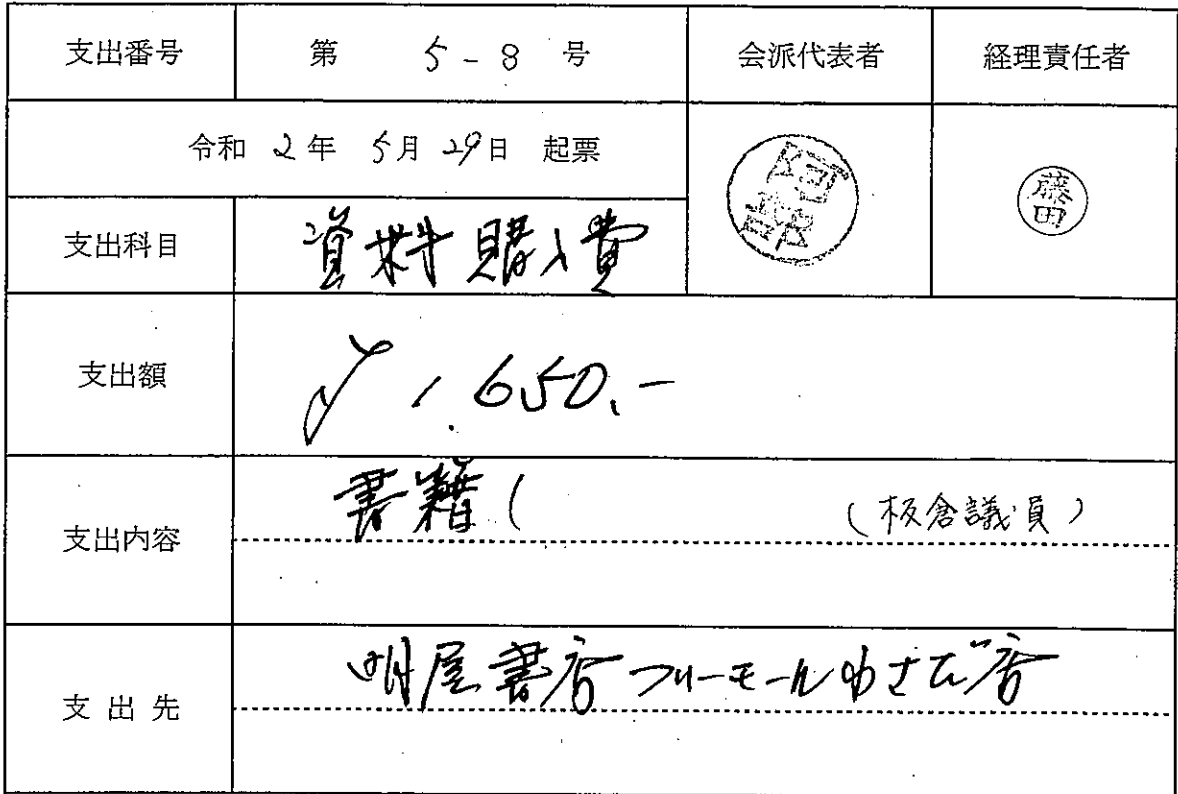 支出番号 第 5-8 号 会派代表者 経理責任者
令和 2年 5月 29日 起票
藤田
支出科目 資料購入費
支出額 ¥1,650.-
支出内容 書籍( (板倉議員)
支出先 明屋書店フリーモールわさだ店